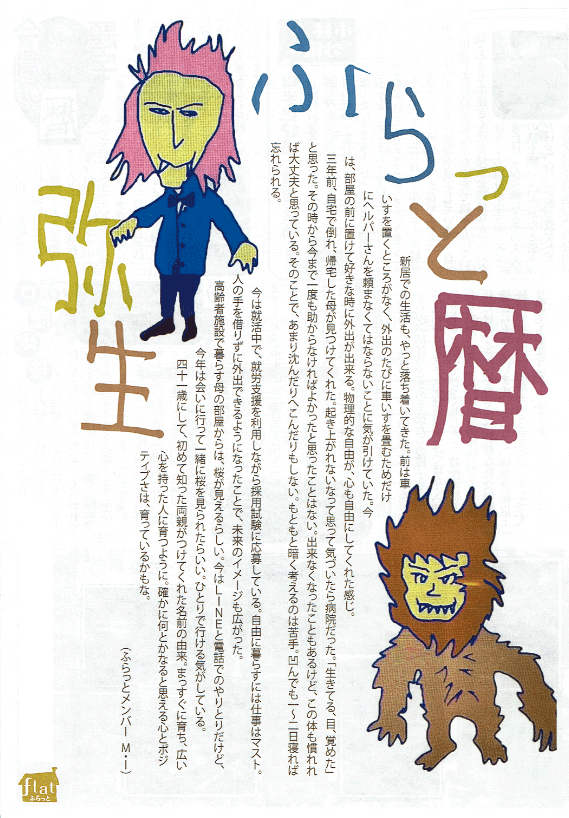 ふらっと暦
弥生
新居での生活も、やっと落ち着いてきた。前は車
いすを置くところがなく、外出のたびに車いすを畳むためだけ
にヘルパーさんを頼まなくてはならないことに気が引けていた。今
は、部屋の前に置けて好きな時に外出が出来る。物理的な自由が、心も自由にしてくれた感じ。
三年前、自宅で倒れ、帰宅した母が見つけてくれた。起き上がれないなって思って気づいたら病院だった。「生きてる、目、覚めた」
と思った。その時から今まで一度も助からなければよかったと思ったことはない。出来なくなったこともあるけど、この体も慣れれ
ば大丈夫と思っている。そのことで、あまり沈んだりへこんだりもしない。もともと暗く考えるのは苦手。凹んでも一～二日寝れば
忘れられる。
今は就活中で、就労支援を利用しながら採用試験に応募している。自由に暮らすには仕事はマスト。
人の手を借りずに外出できるようになったことで、未来のイメージも広がった。
高齢者施設で暮らす母の部屋からは、桜が見えるらしい。今はLINEと電話でのやりとりだけど、
今年は会いに行って一緒に桜を見られたらいい。ひとりで行ける気がしている。
四十一歳にして、初めて知った両親がつけてくれた名前の由来。まっすぐに育ち、広い
心を持った人に育つように。確かに何とかなると思える心とポジ
ティブさは、育っているかもな。
（ふらっとメンバー M・I）
flat
ふらっと